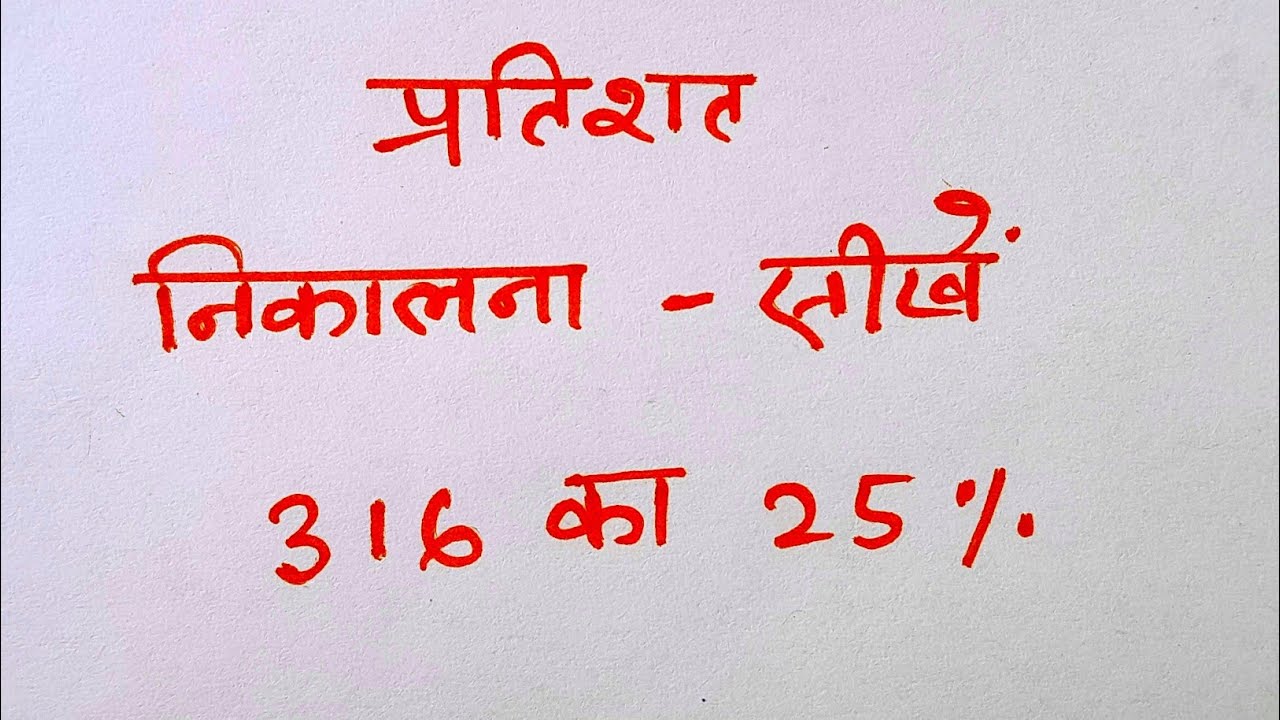 प्रतिशत
निकालना - सीखें
316 का 25%